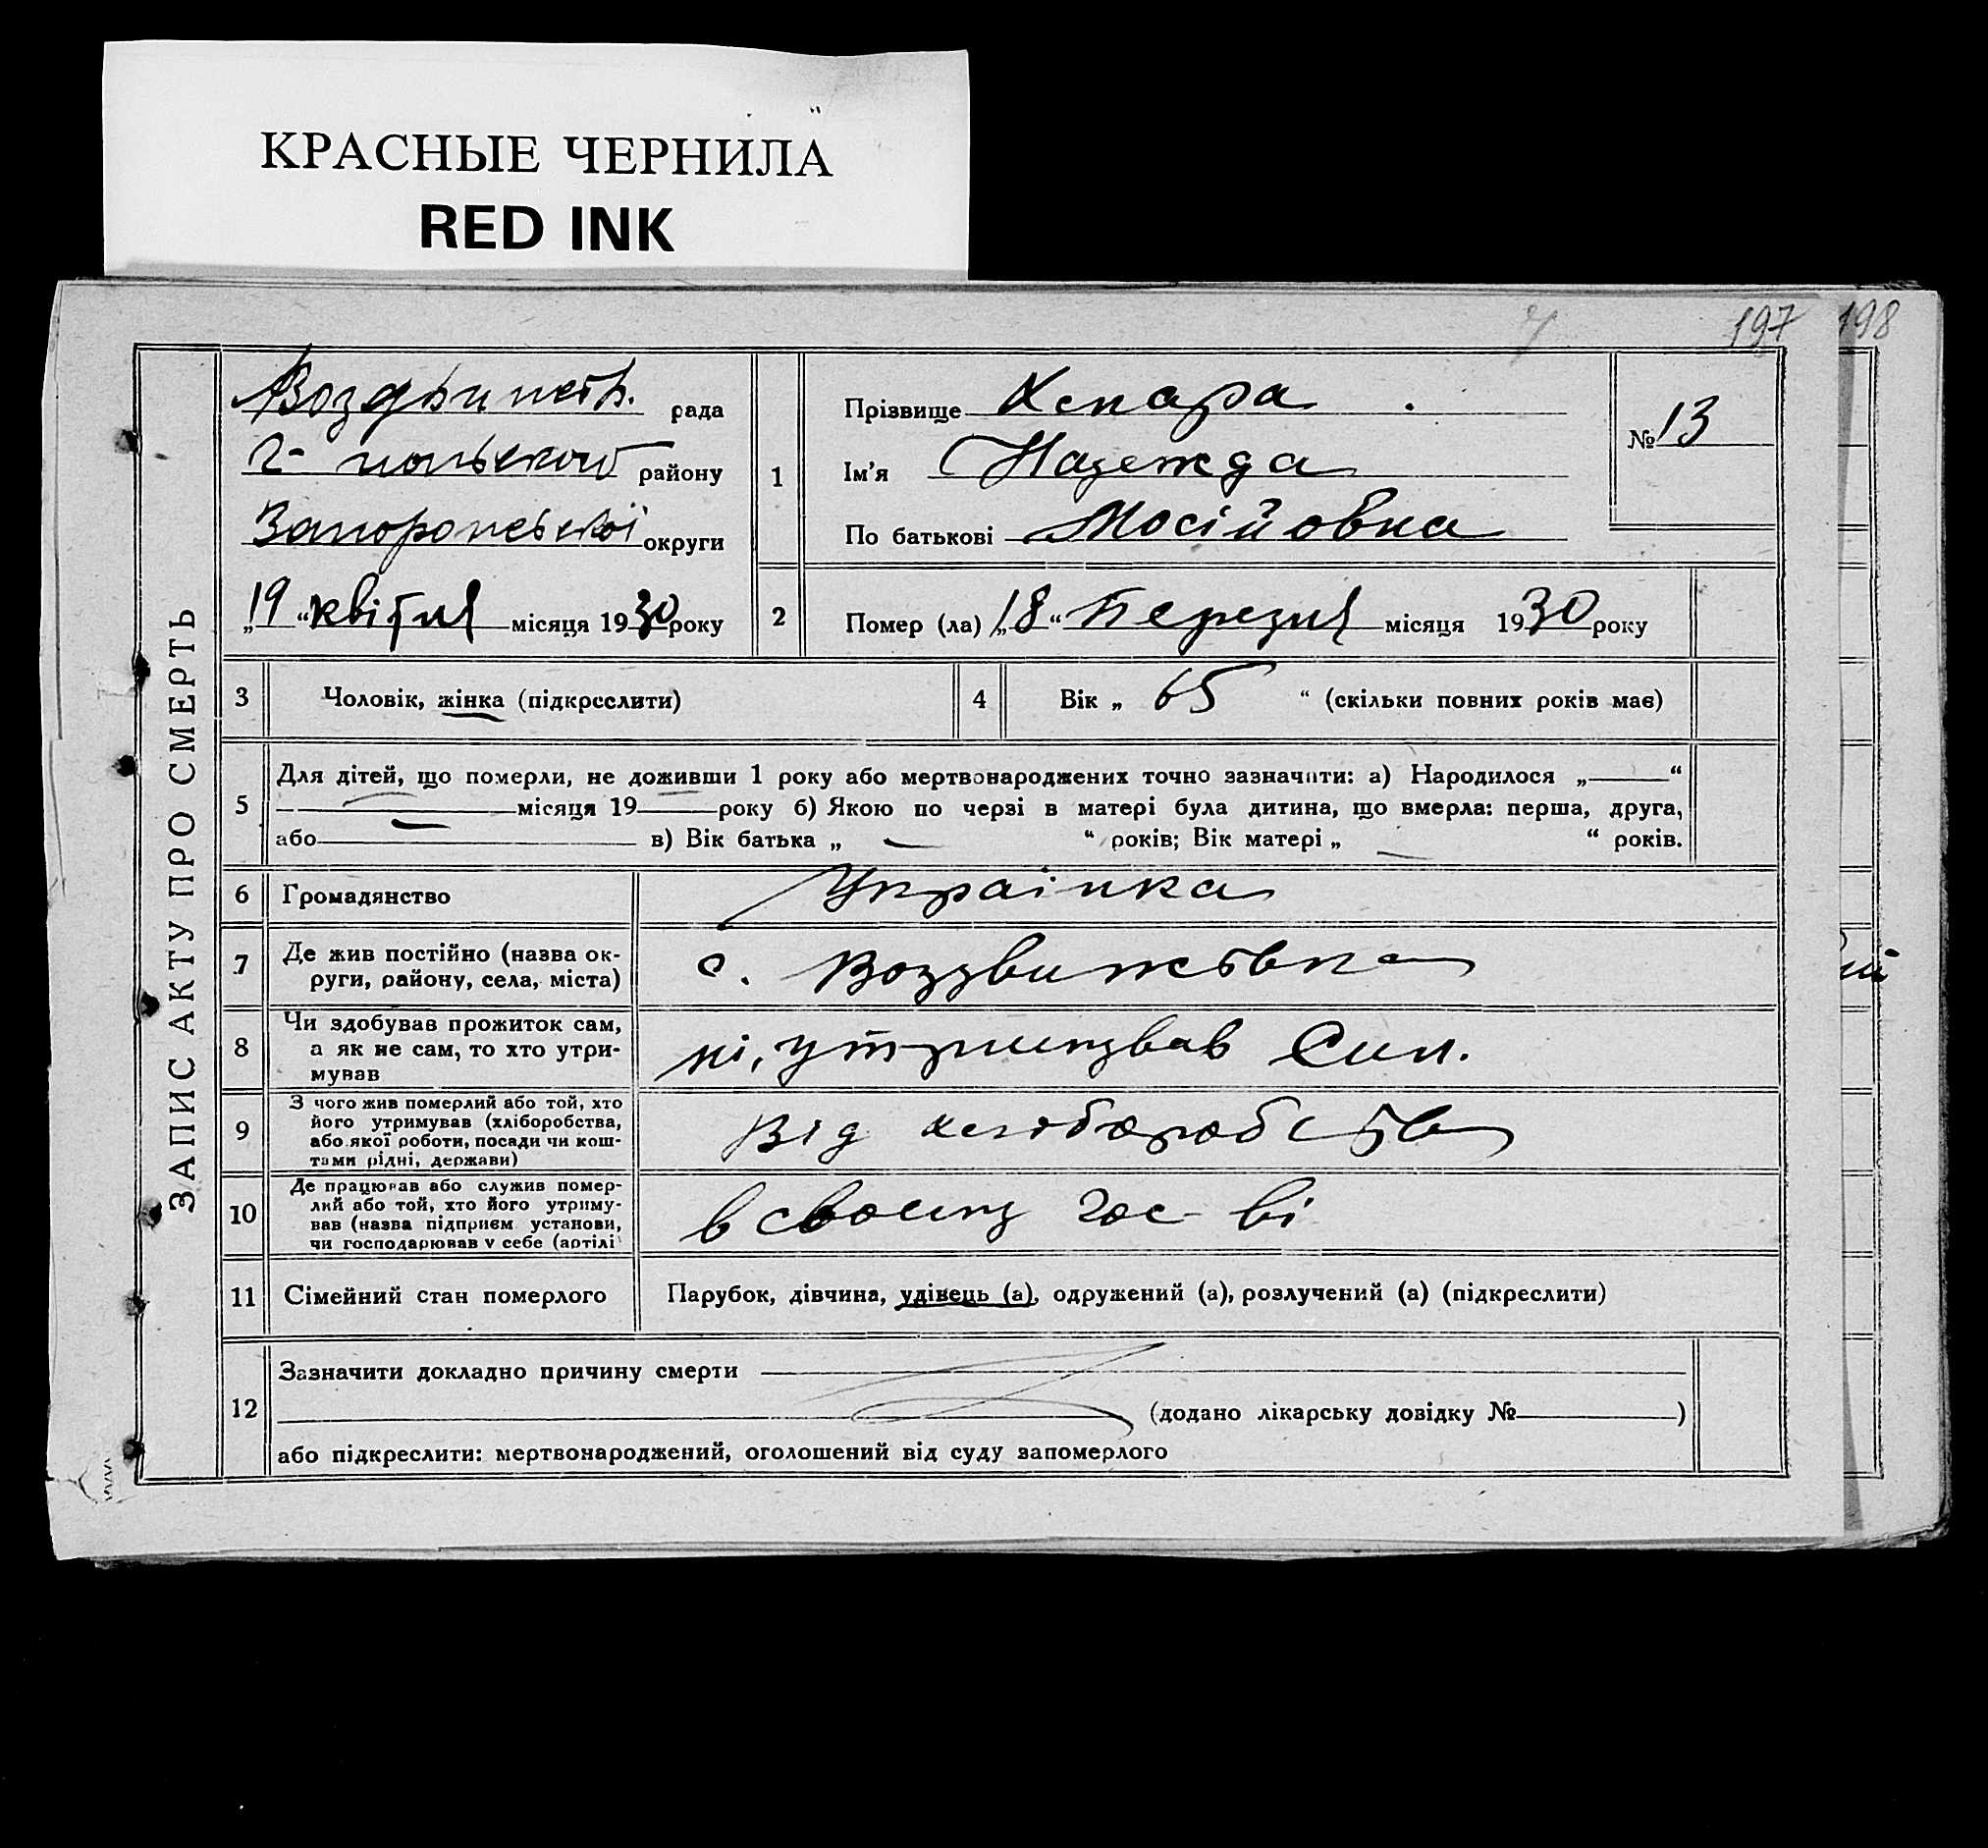 КРАСНЫЕ ЧЕРНИЛА
RED INK
197
198
ЗАПИС АКТУ ПРО СМЕРТЬ
рада
Г-польского району
Запорожської округи
„19“ квітня місяця 1930 року
1
Прізвище
Ім'я Надежда
По батькові Мосійовна
№ 13
2
Помер (ла) „18“ Березня місяця 1930 року
3 Чоловік, жінка (підкреслити)
4 Вік „ 65 “ (скільки повних років має)
5 Для дітей, що померли, не доживши 1 року або мертвонароджених точно зазначити: а) Народилося „ “
місяця 19 року б) Якою по черзі в матері була дитина, що вмерла: перша, друга,
або в) Вік батька „ “ років; Вік матері „ “ років.
6 Громадянство Украінка
7 Де жив постійно (назва ок-
руги, району, села, міста)
с. Воздвижевка
8 Чи здобував прожиток сам,
а як не сам, то хто утри-
мував
ні, утримував Син.
9 З чого жив померлий або той, хто
його утримував (хліборобства,
або якої роботи, посади чи кош-
тами рідні, держави)
Від хліборобства
10 Де працював або служив помер-
лий або той, хто його утриму-
вав (назва підприєм установи,
чи господарював у себе (артілі
в своему гос-ві
11 Сімейний стан померлого Парубок, дівчина, удівець (а), одружений (а), розлучений (а) (підкреслити)
12 Зазначити докладно причину смерти
(додано лікарську довідку № )
або підкреслити: мертвонароджений, оголошений від суду запомерлого